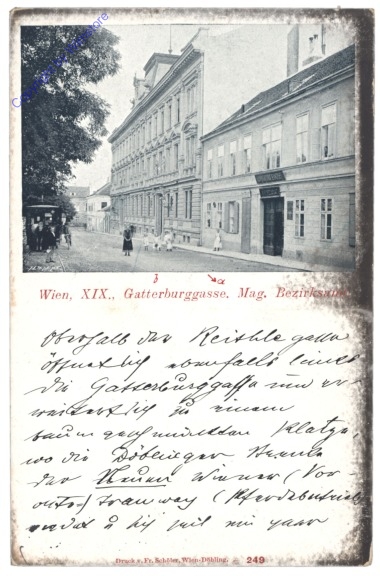 b a
Wien, XIX., Gatterburggasse. Mag. Bezirksamt.
Oberhalb der Reithlegasse
öffnet sich ebenfalls links
die Gatterburggasse und er
weitert sich zu einem
baumgeschmückten Platze,
wo die Döblinger Strecke
der Neuen Wiener (Vor-
orte-) Tramway (Pferdebetrieb)
endet u sich seit ein paar
Druck v. Fr. Schöler, Wien-Döbling. 249